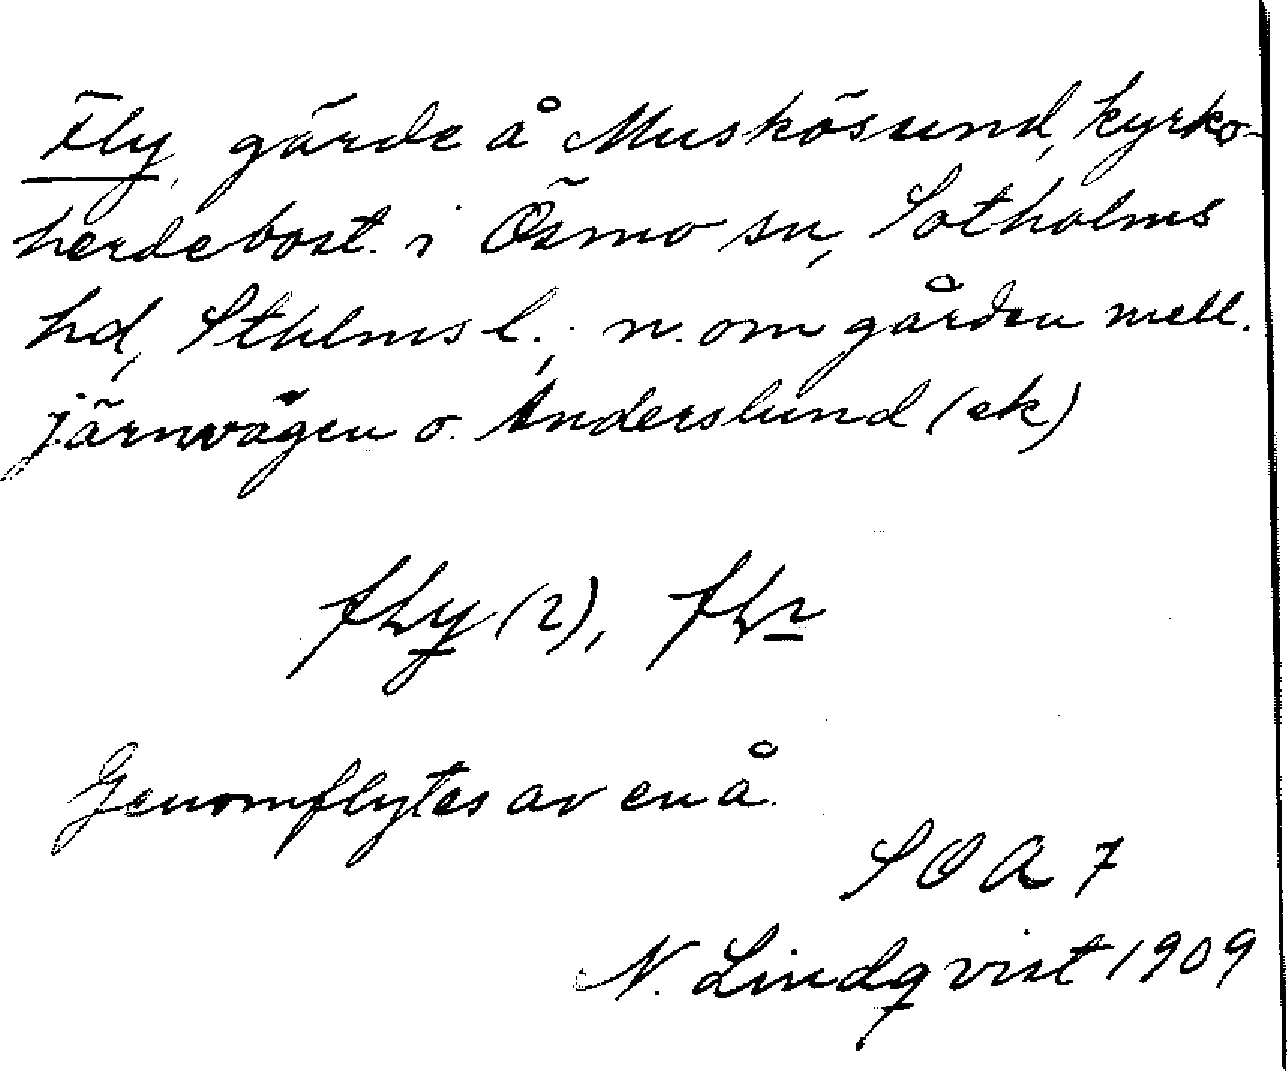 Fly, gärde å Muskösund, kyrko-
herdebost. i Ösmo sn, Sotholms
hd, Sthlms l.; n. om gården mell.
järnvägen o. Anderslund (ek)
fly (2),
Genomflytes av en å.
SOA 7
N. Lindqvist 1909